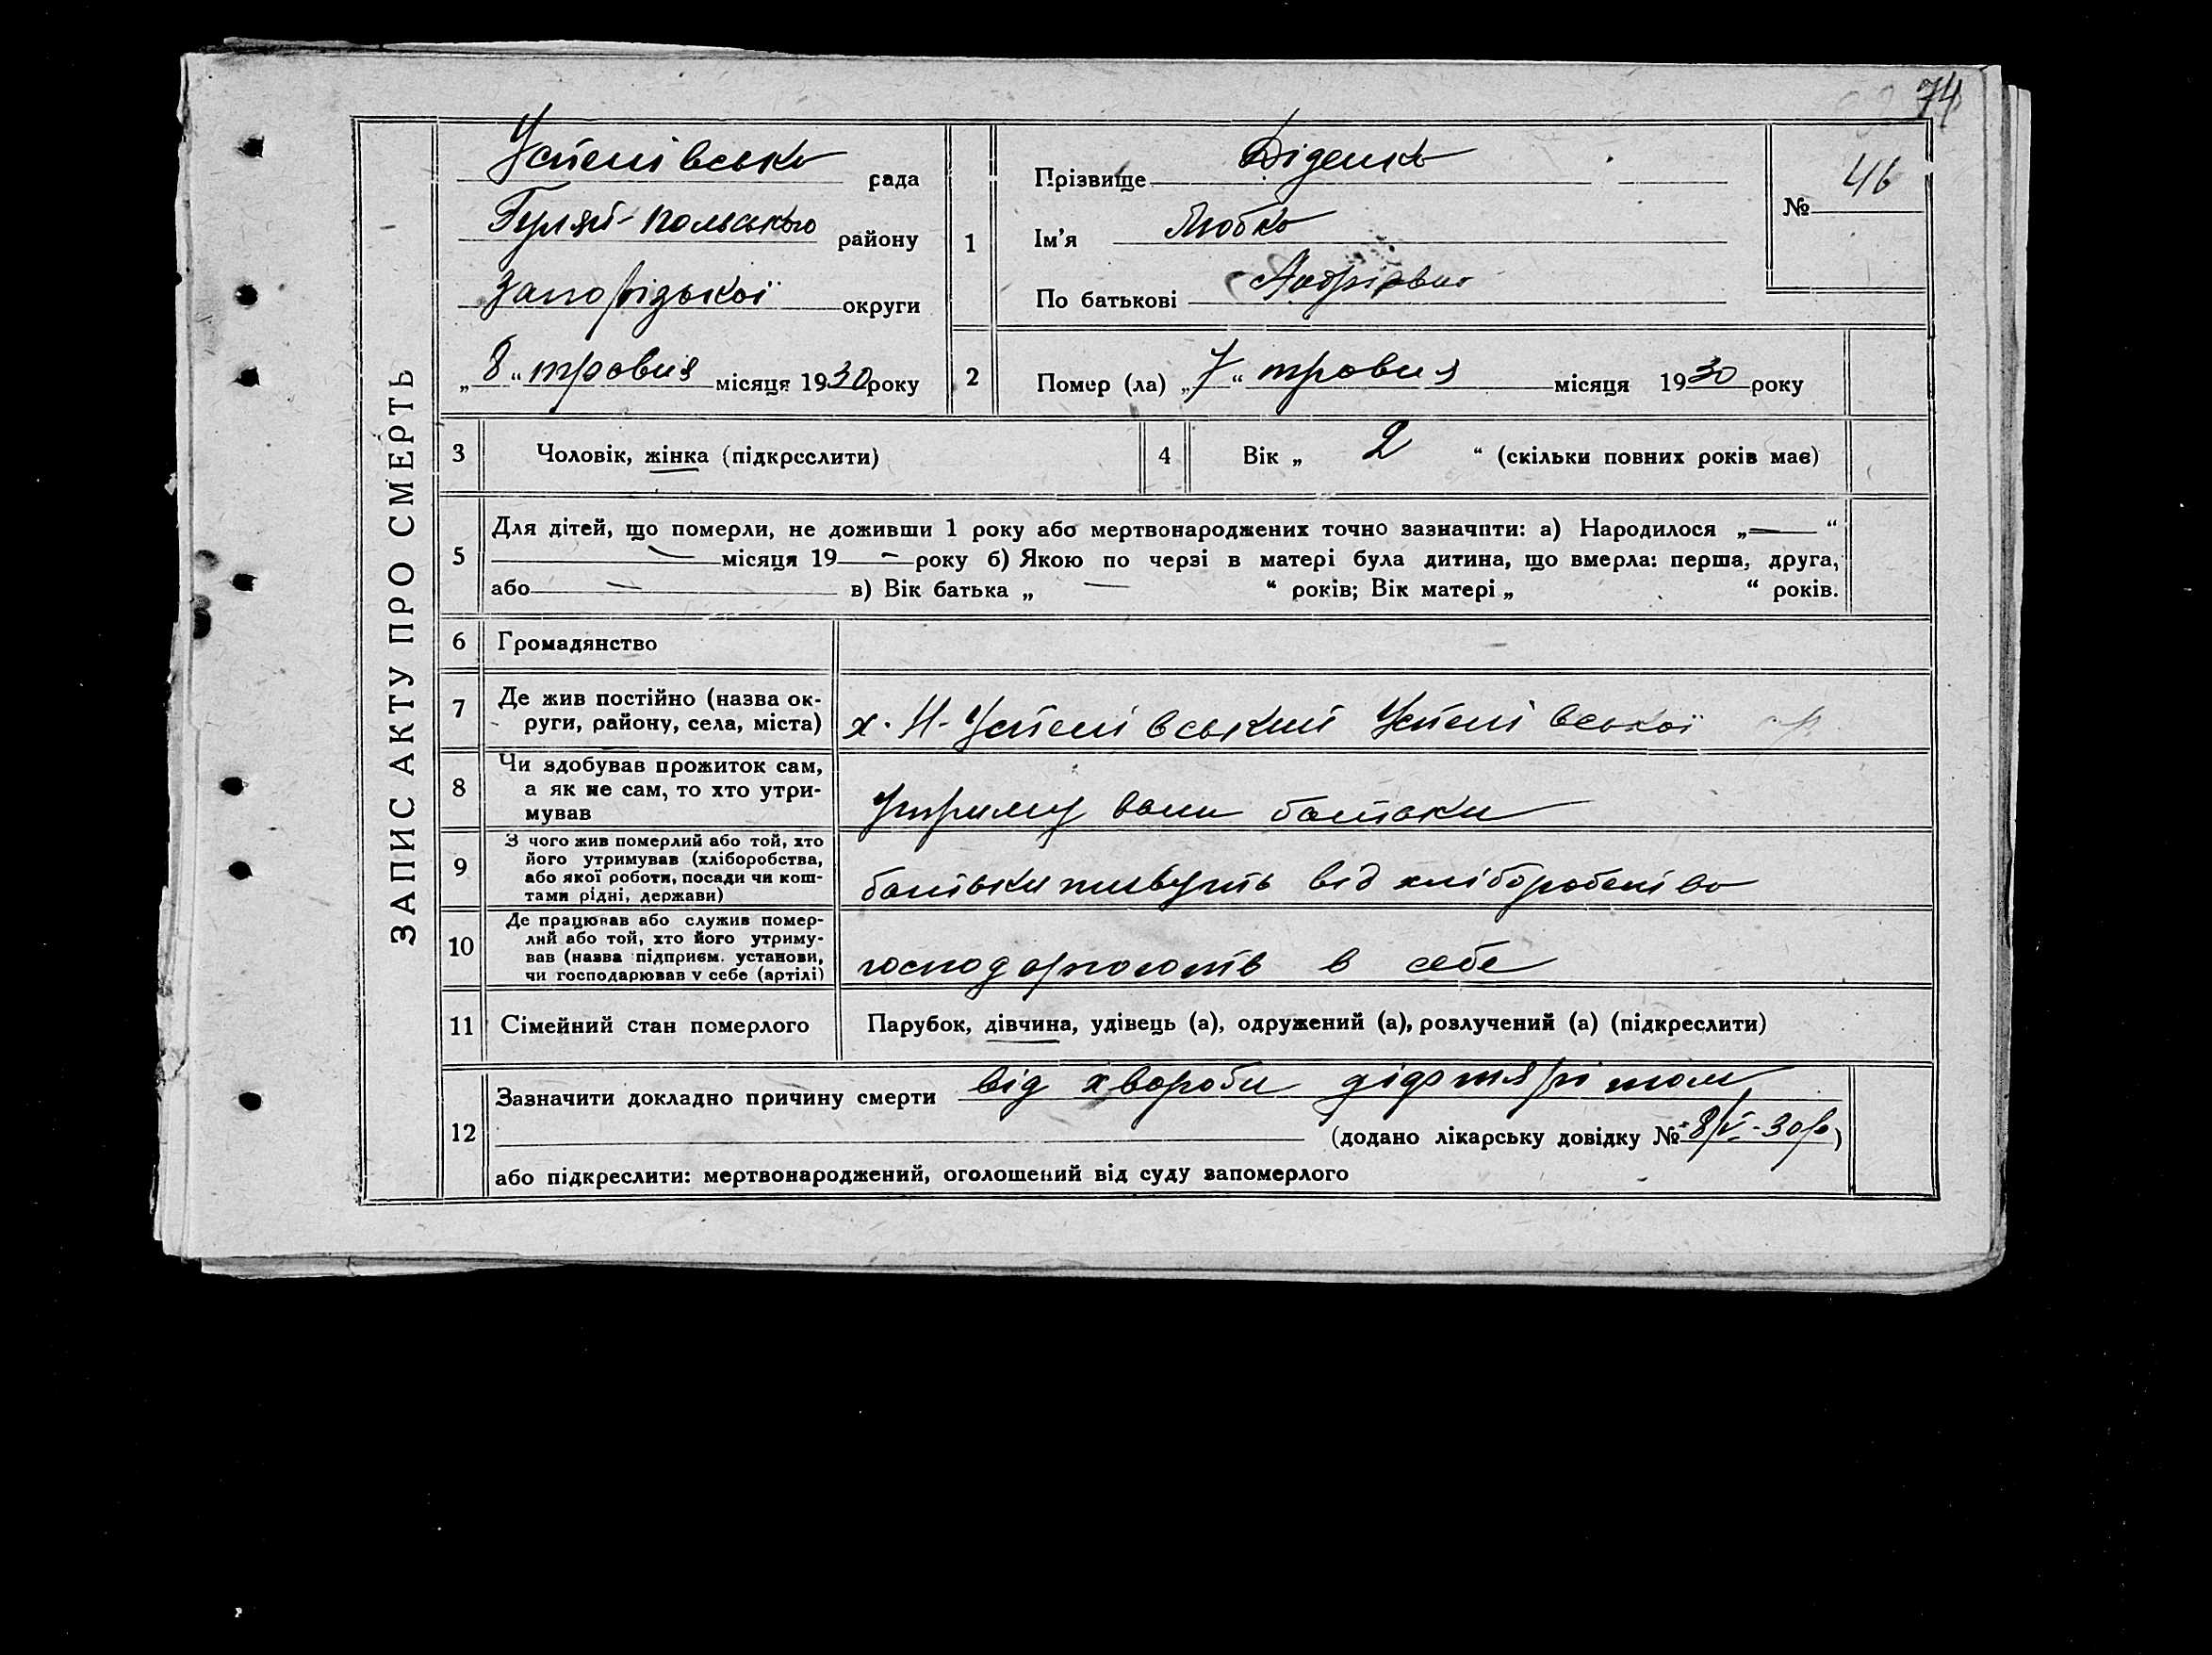 74
ЗАПИС АКТУ ПРО СМЕРТЬ
Успенівська рада
Гуляй-Польського району
Запорізької округи
„8“ травня місяця 1930 року
1
Прізвище Діденко
Ім'я Любка
По батькові Андріївна
№ 46
2
Помер (ла) „7“ травня місяця 1930 року
3 Чоловік, жінка (підкреслити)
4 Вік „ 2 “ (скільки повних років має)
5
Для дітей, що померли, не доживши 1 року або мертвонароджених точно зазначити: а) Народилося „— “
— місяця 19 — року б) Якою по черзі в матері була дитина, що вмерла: перша, друга,
або — в) Вік батька „ — “ років; Вік матері „ “ років.
6 Громадянство
7 Де жив постійно (назва ок-
руги, району, села, міста)
х. Н-Успенівський Успенівської с/р
8 Чи здобував прожиток сам,
а як не сам, то хто утри-
мував
утримували батьки
9 З чого жив померлий або той, хто
його утримував (хліборобства,
або якої роботи, посади чи кош-
тами рідні, держави)
батьки живуть від хліборобства
10 Де працював або служив помер-
лий або той, хто його утриму-
вав (назва підприєм. установи,
чи господарював у себе (артілі)
господарюють в себе
11 Сімейний стан померлого
Парубок, дівчина, удівець (а), одружений (а), розлучений (а) (підкреслити)
12
Зазначити докладно причину смерти від хвороби
(додано лікарську довідку № 8/V-30р)
або підкреслити: мертвонароджений, оголошений від суду запомерлого